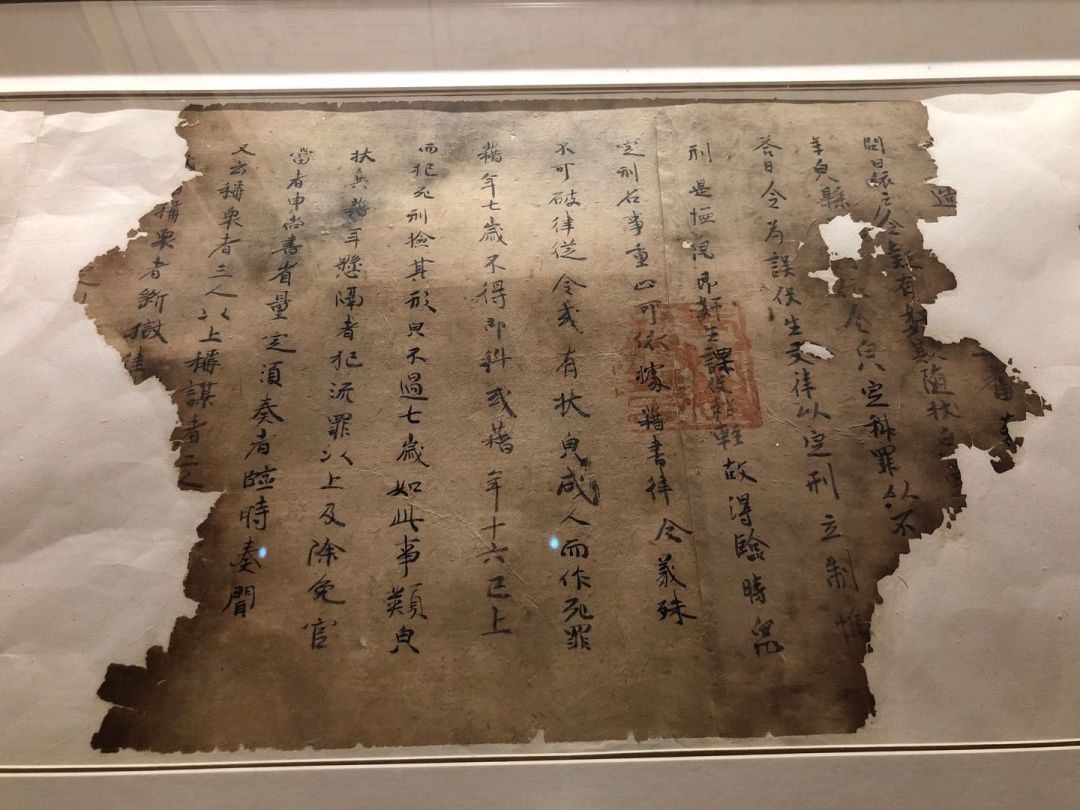 造
問曰依令疑有奸欺隨狀皃
年皃縣令皃定科罪以不
答曰令為課役生文律以定刑立制惟
刑是恤皃即奸生課役稍輕故得臨時皃
定刑名事重止可依據籍書律令義殊
不可破律從令或有狀皃成人而作死罪
籍年七歲不得即科或籍年十六已上
而犯死刑撿其形皃不過七歲如此事類皃
狀共籍年懸隔者犯流罪以上及除免官
當者申尚書省量定須奏者臨時奏聞
又云稱眾者三人以上稱謀者二人
稱眾者斷獄律